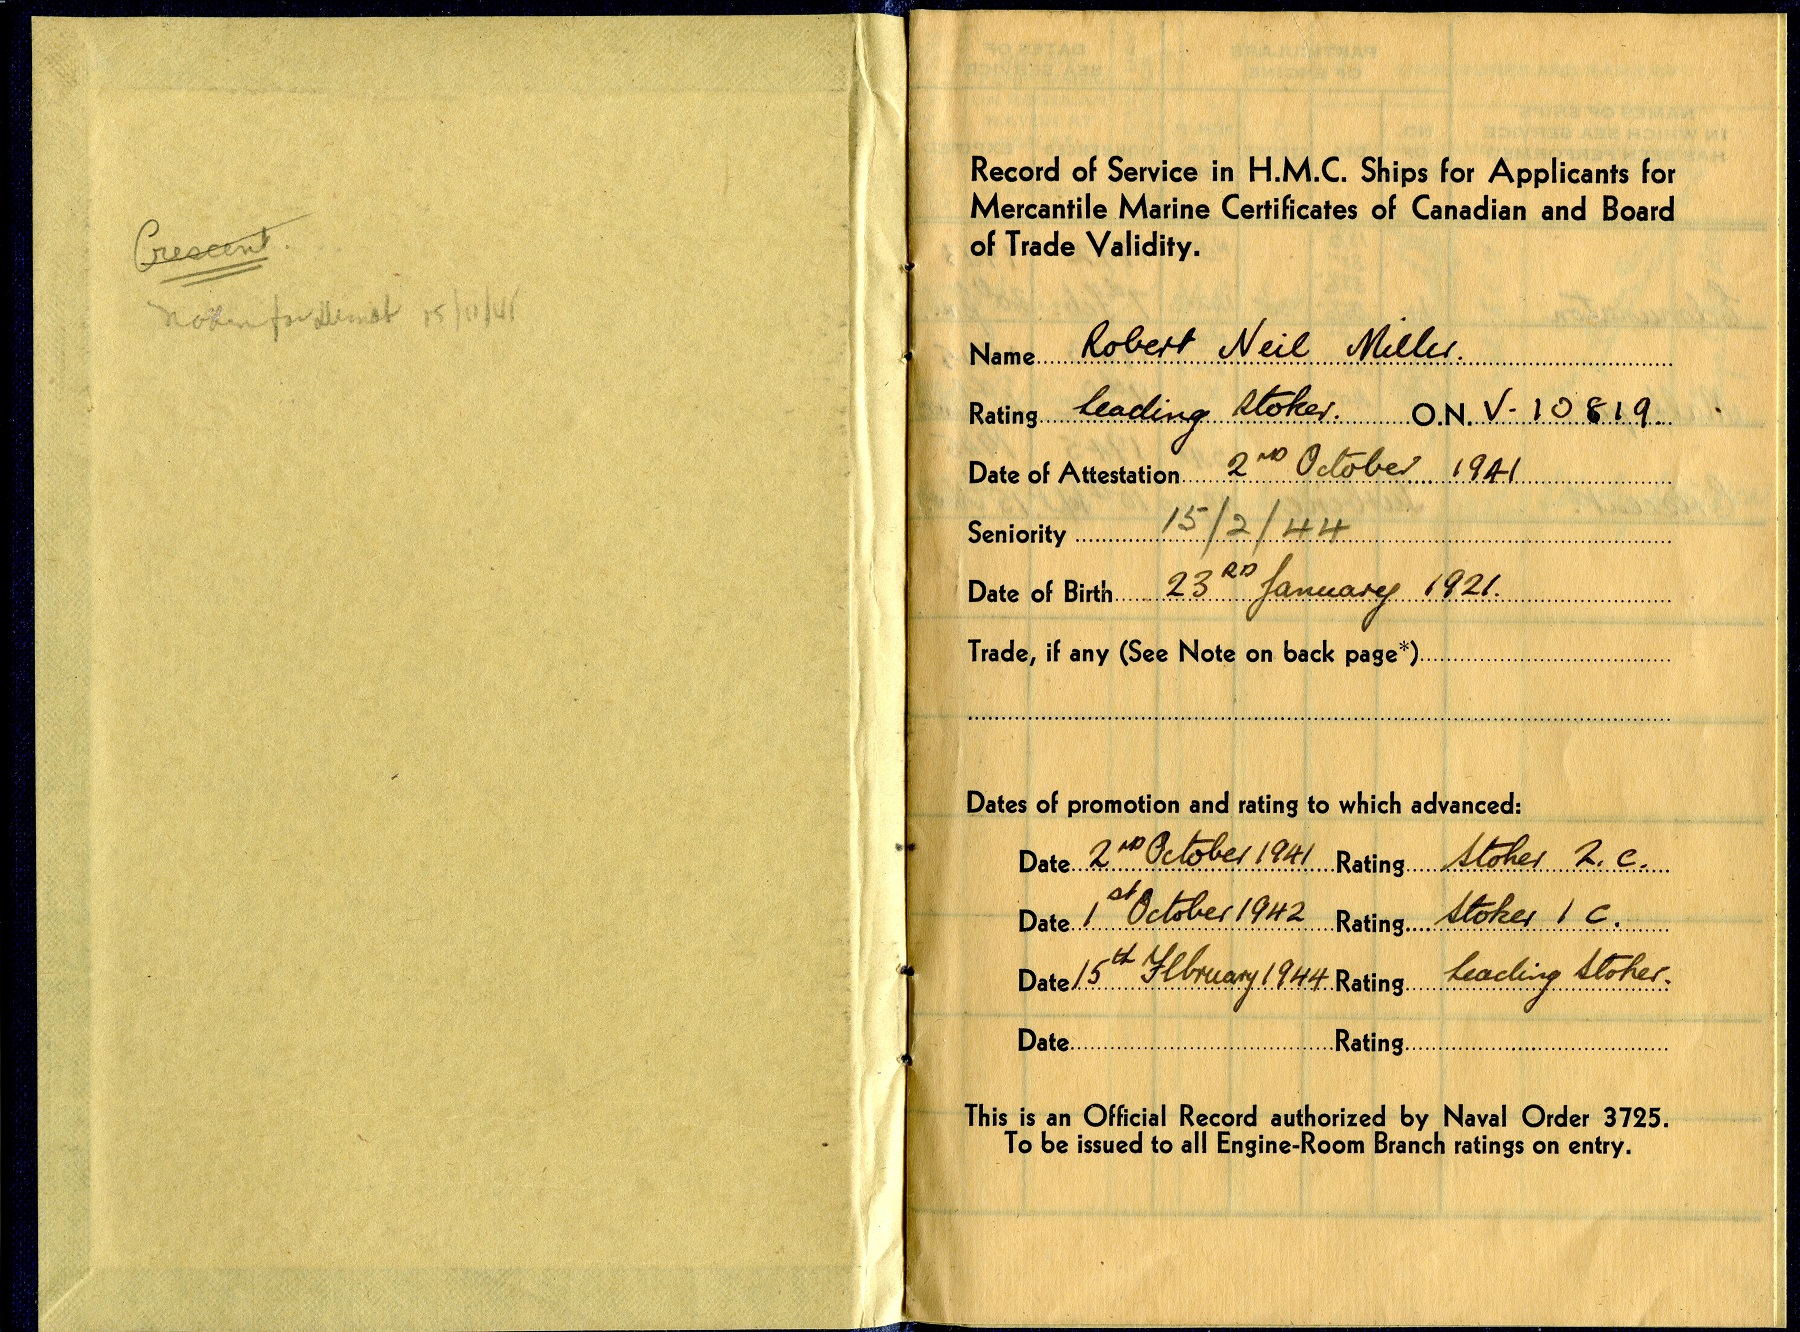 Crescent.
for demob 15/11/45
Record of Service in H.M.C. Ships for Applicants for
Mercantile Marine Certificates of Canadian and Board
of Trade Validity.
Name Robert Neil Miller.
Rating Leading Stoker. O.N. V-10819.
Date of Attestation 2ND October 1941
Seniority 15/2/44
Date of Birth 23RD January 1921.
Trade, if any (See Note on back page*)
Dates of promotion and rating to which advanced:
Date 2ND October 1941 Rating Stoker 2.C.
Date 1st October 1942 Rating Stoker 1 C.
Date 15th February 1944 Rating Leading Stoker.
Date Rating
This is an Official Record authorized by Naval Order 3725.
To be issued to all Engine-Room Branch ratings on entry.